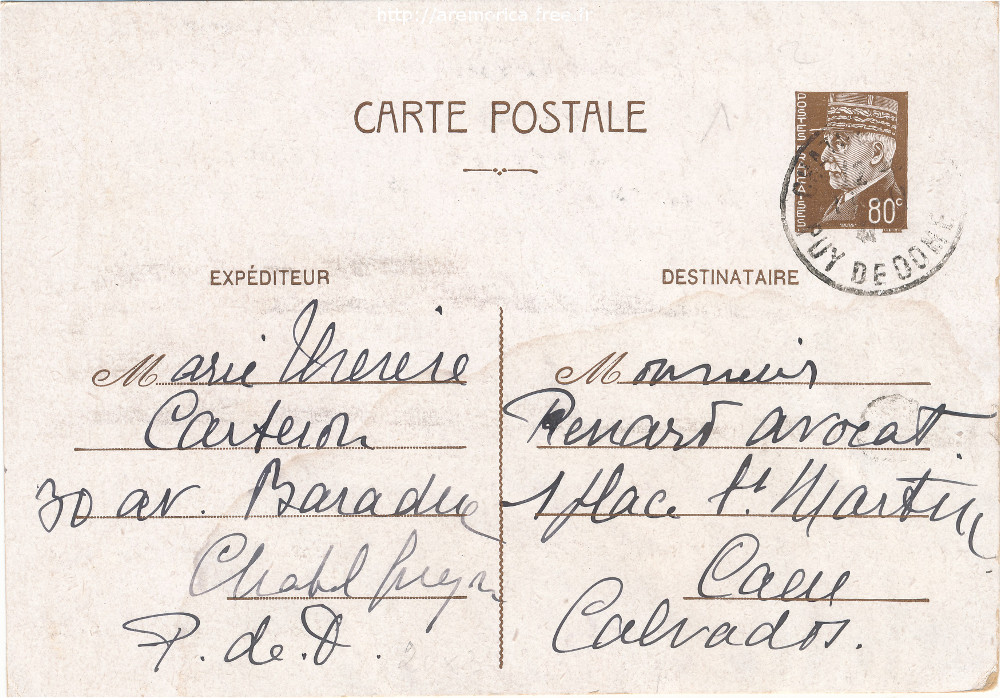 http://aremorica.free.fr
CARTE POSTALE
POSTES FRANÇAISES
80c
PUY DE DOME
EXPÉDITEUR
Marie Therese
Carteron
30 av. Baraduc
Chatel Guyon
P. de. D.
DESTINATAIRE
Monsieur
Renard avocat
1 place St Martin
Caen
Calvados.